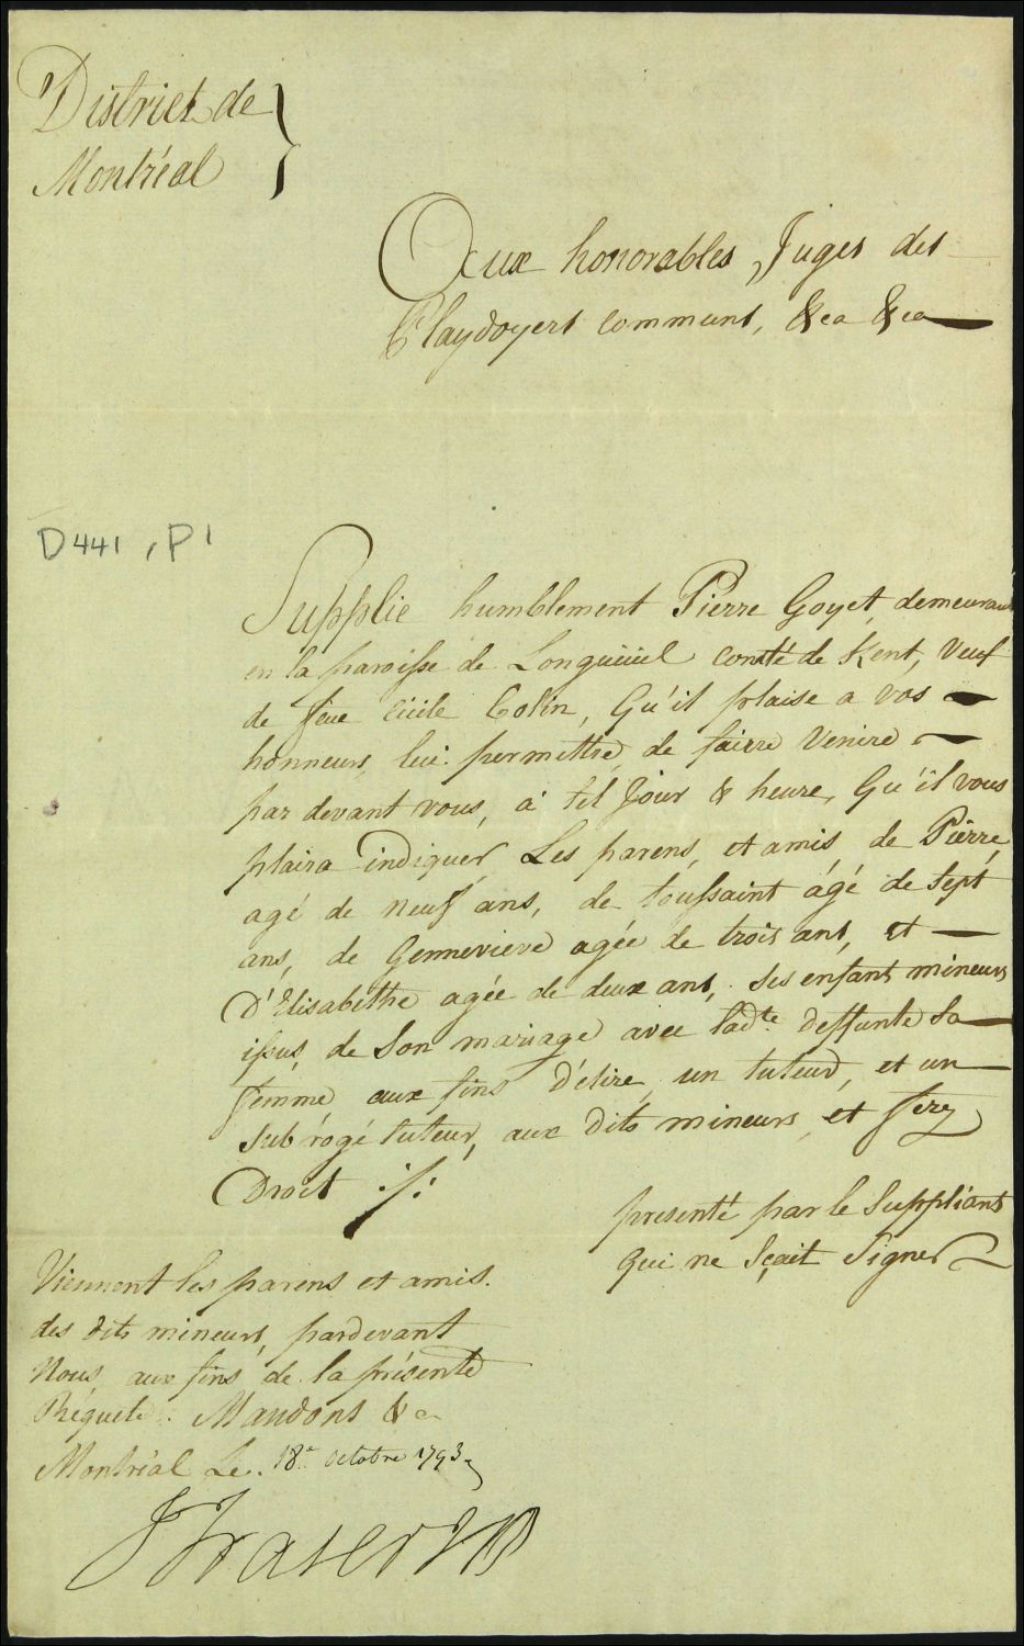 District de
Montréal
Aux honorables Juges des
Playdoyers communs, &ca &ca
D441, P1
Supplie humblement Pierre Goyet, demeurant
en la paroisse de Longueüiel comté de Kent, Veuf
de feue Cécile Colin, Qu'il plaise a vos
honneurs, lui permettre, de faire Venire
par devant vous, a tel Jour & heure, Qu'il vous
plaira indiquer Les parens, et amis, de Pierre,
agé de neuf ans, de toussaint agé de Sept
ans, de Gennevieve agée de trois ans, et
D'Elisabethe agée de deux ans, Ses enfant mineurs
issus, de Son mariage avec ladte deffunte Sa
femme, aux fins D'élire, un tuteur, et un
Subrogé tuteur, aux Dits mineurs, et ferez
Droit ./.
presenté par le Suppliant
Qui ne Sçait Signer
Viennent les parens et amis.
des dits mineurs, pardevant
Nous, aux fins de la présente
Réquete. Mandons &a
Montréal Le. 18e octobre 1793
J Fraser JCB